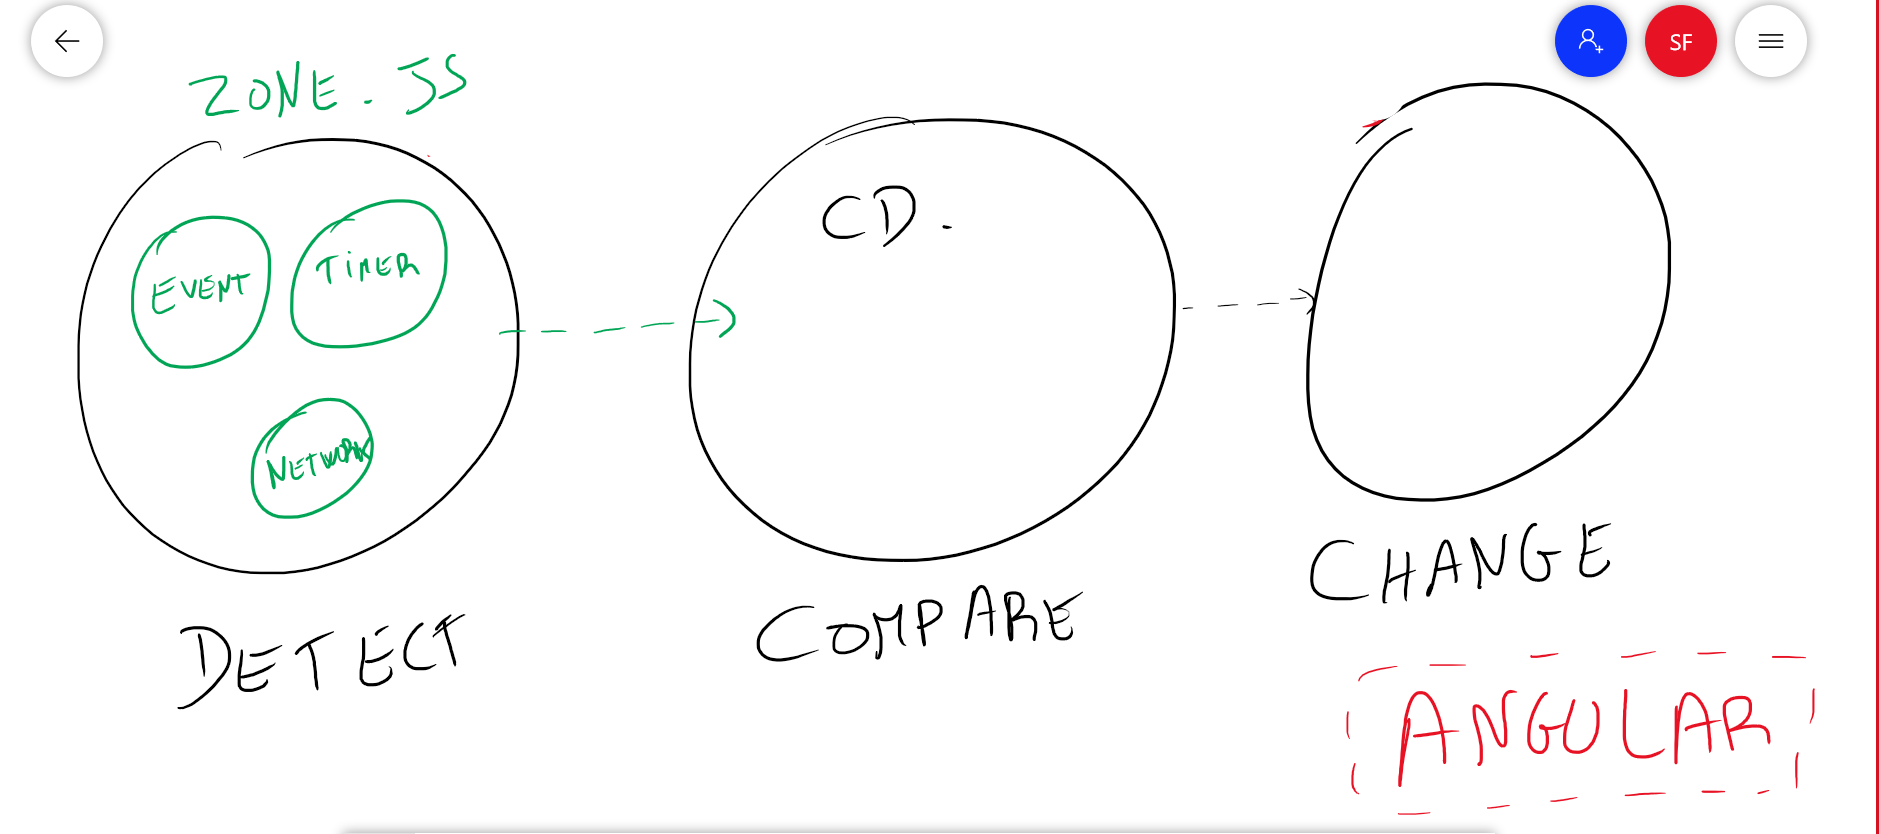 SF
ZONE.JS
EVENT
TIMER
NETWORK
CD.
DETECT
COMPARE
CHANGE
ANGULAR